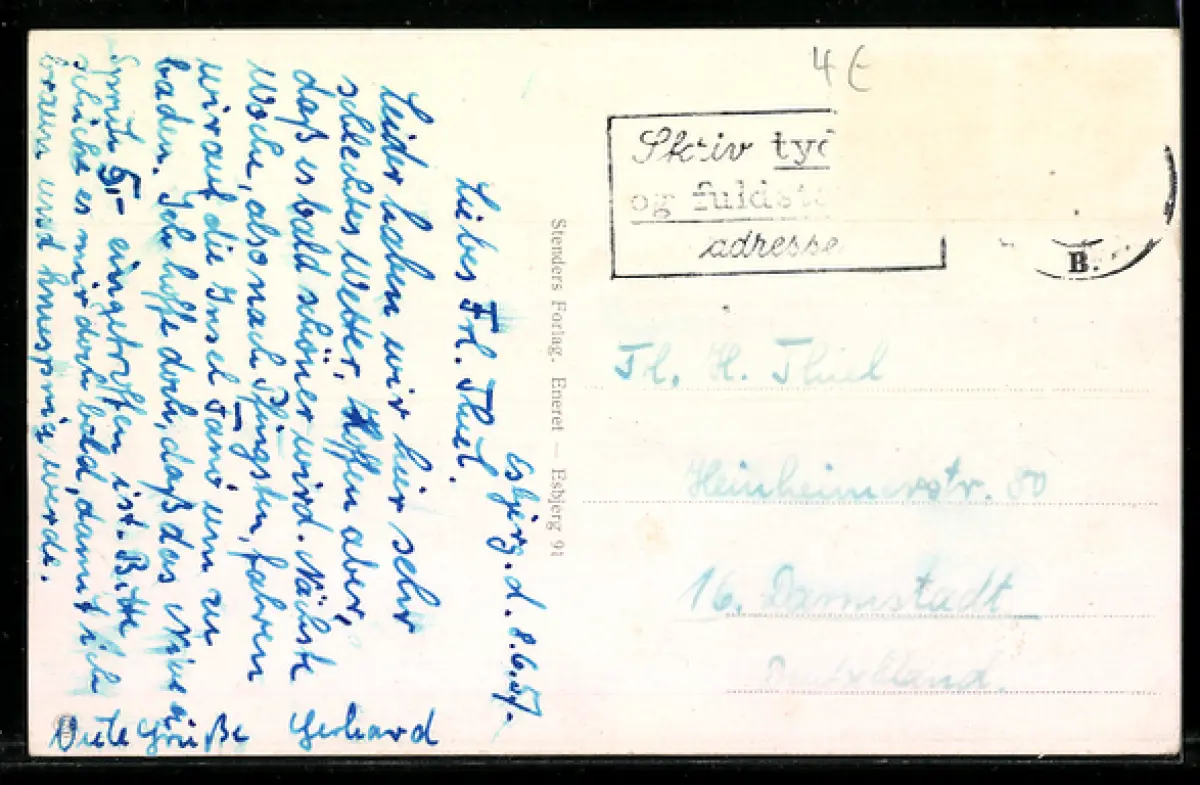 Esbjerg. d. 8.6.57.
Liebes Frl. Thiel.
Leider haben wir hier sehr
schlechtes Wetter, Hoffen aber,
daß es bald schöner wird. Nächste
Woche, also nach Pfingsten, fahren
wir auf die Insel Fanö um zu
baden. Ich hoffe doch, daß das
5,- eingetroffen ist. Bitte
schickt es mir doch bald, damit ich
braun und knusprig werde.
Viele Grüße Gerhard
Stenders Forlag. Eneret — Esbjerg 91
4 €
Skriv tyd
og fuldst
adresse
B.
Frl. H. Thiel
Heinheimerstr. 80
16. Darmstadt
Deutschland.